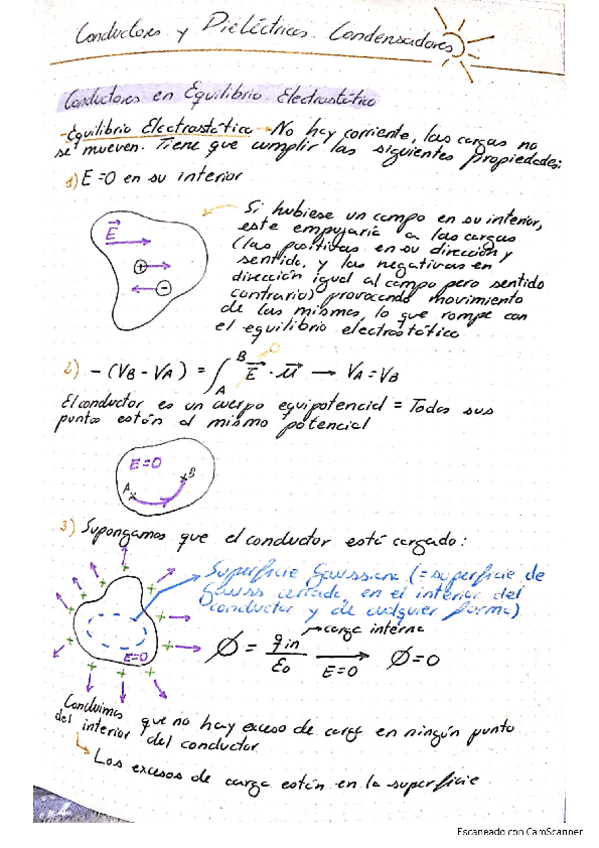 Conductores y Dieléctricos. Condensadores
Conductores en Equilibrio Electrostático
- Equilibrio Electrostático → No hay corriente, las cargas no
se mueven. Tiene que cumplir las siguientes propiedades:
1) E=0 en su interior
Si hubiese un campo en su interior,
este empujaría a las cargas
(las positivas en su dirección y
sentido, y las negativas en
dirección igual al campo pero sentido
contrario) provocando movimiento
de las mismas, lo que rompe con
el equilibrio electrostático
E
+
-
2) - (VB - VA) = ∫ A B E · u → VA = VB
0
El conductor es un cuerpo equipotencial = Todos sus
puntos están al mismo potencial
E=0
A
B
3) Supongamos que el conductor está cargado:
Superficie Gaussiana (= superficie de
Gauss cerrada, en el interior del
conductor y de cualquier forma)
E=0
carga interna
Ø = qin / ε0 → E=0 Ø=0
Concluimos que no hay exceso de carga en ningún punto
del interior del conductor
Los excesos de carga están en la superficie
Escaneado con CamScanner